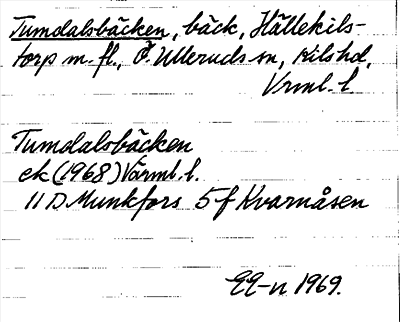 Tumdalsbäcken, bäck, Hällekils-
torp m.fl., Ö. Ulleruds sn, Kils hd,
Vrml. l.
Tumdalsbäcken
ek (1968) Värml. l.
11 D. Munkfors 5 f Kvarnåsen
EE-n 1969.